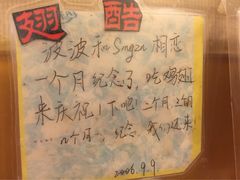 翅 酷
波波和Suszn 相恋
一个月纪念了，吃鸡翅
来庆祝1下吧！二个月，三个月
……n个月，纪念，我们还来！
2006.9.9.